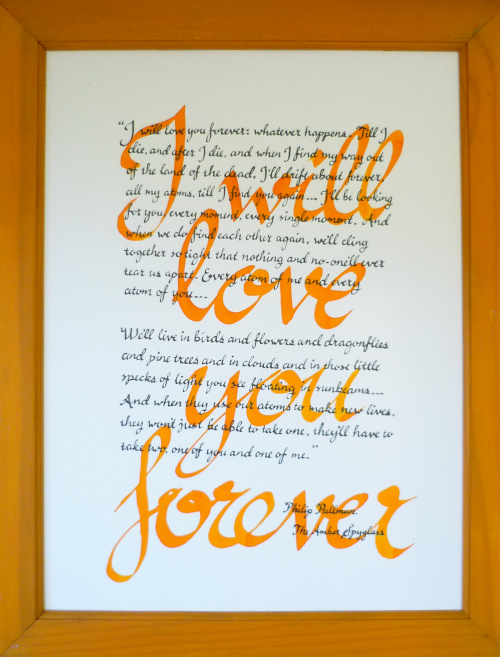 I will
love
you
forever
"I will love you forever; whatever happens. Till I
die, and after I die, and when I find my way out
of the land of the dead, I'll drift about forever,
all my atoms, till I find you again.... I'll be looking
for you, every moment, every single moment. And
when we do find each other again, we'll cling
together so tight that nothing and no-one'll ever
tear us apart. Every atom of me and every
atom of you....
We'll live in birds and flowers and dragonflies
and pine trees and in clouds and in those little
specks of light you see floating in sunbeams....
And when they use our atoms to make new lives,
they won't just be able to take one, they'll have to
take two, one of you and one of me."
Philip Pullman.
The Amber Spyglass